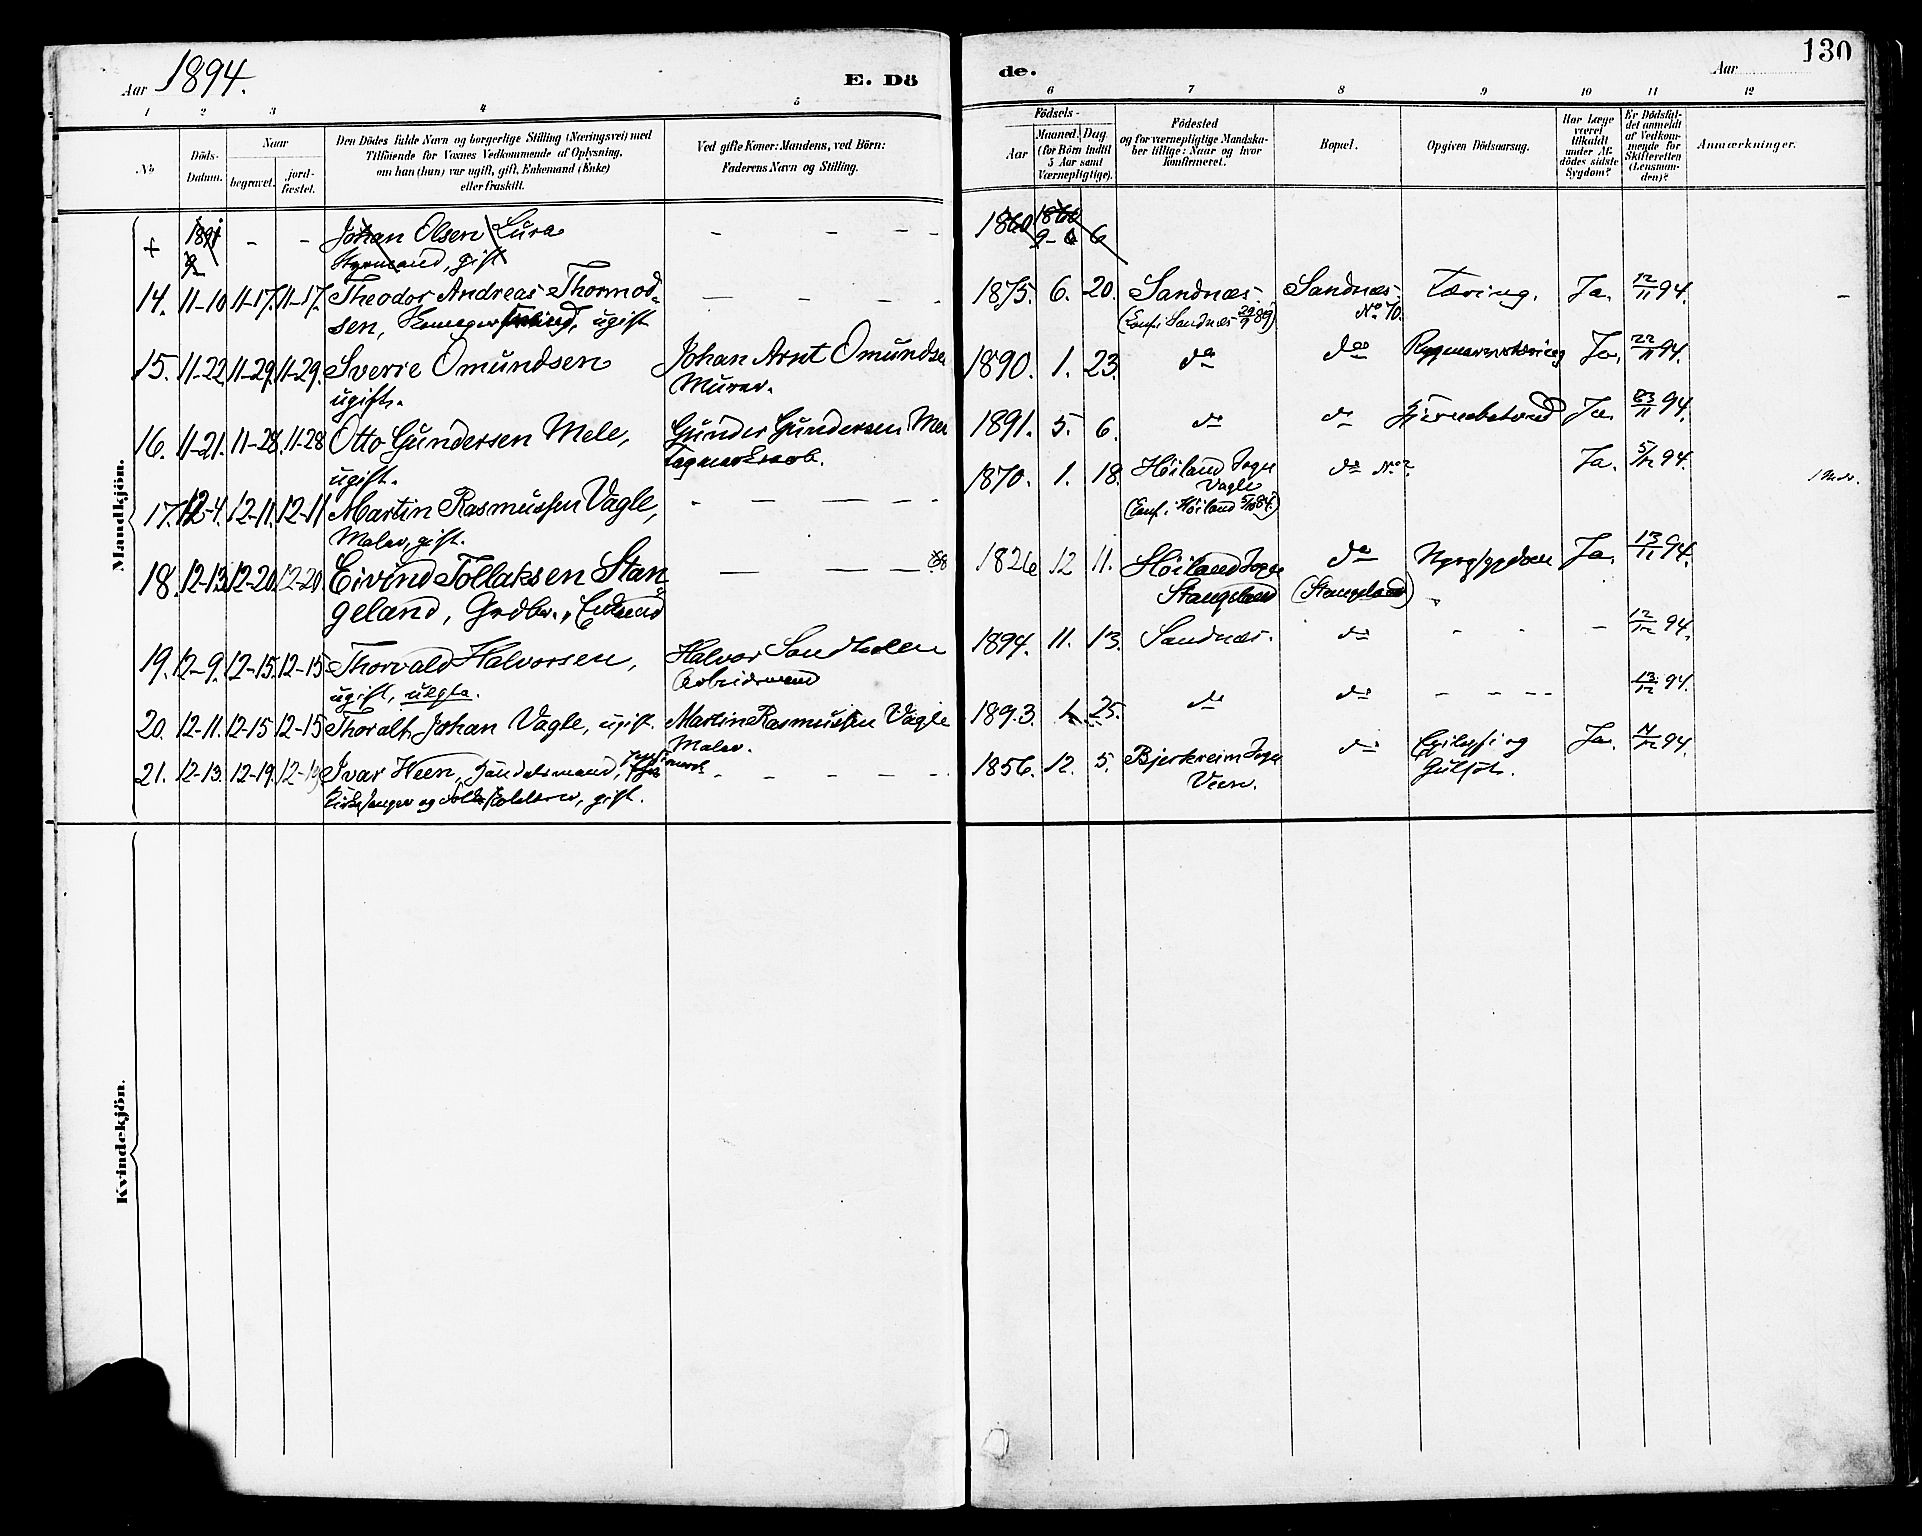 Aar 1894.
E. Dö
de.
Aar
130
1 2 3 4 5 6 7 8 9 10 11 12
No
Döds-
Datum.
Naar
begravet.
jord-
fæstet.
Den Dödes fulde Navn og borgerlige Stilling (Næringsvei) med
Tilföiende for Voxnes Vedkommende af Oplysning,
om han (hun) var ugift, gift, Enkemand (Enke)
eller fraskilt.
Ved gifte Koner: Mandens, ved Börn:
Faderens Navn og Stilling.
Födsels-
Aar
Maaned. Dag.
(for Börn indtil
5 Aar samt
Værnepligtige).
Födested
og for værnepligtige Mandska-
ber tillige: Naar og hvor
konfirmeret.
Bopæl.
Opgiven Dödsaarsag.
Har Læge
været
tilkaldt
under Af-
dödes sidste
Sygdom?
Er Dödsfal-
det anmeldt
af Vedkom-
mende for
Skifteretten
(Lensman-
den)?
Anmærkninger.
Mandkjön.
+ 1891 - - Johan Olsen Lura - - - - 1860 1860
9 Styrmand, gift 9-6 6
14. 11-10 11-17. 11-17. Theodor Andreas Thormod- - - - - 1875. 6. 20. Sandnæs. Sandnæs. Tæring. Ja. 12/11 94. -
sen, ugift (Conf. i Sandnæs 29/9 89) No 70.
15. 11-22 11-29. 11-29. Sverre Omundsen Johan Arnt Omundse 1890. 1. 23. do do Rygmarvstæring Ja. 22/11 94.
ugift. Murer.
16. 11-21. 11-28. 11-28 Otto Gundersen Mele, Gunder Gundersen Me 1891. 5. 6. do do Ja. 23/11 94.
ugift.
17. 12-4. 12-11. 12-11 Martin Rasmussen Vagle, - - - - - 1870. 1. 18. Höiland Sogn do No 2 Ja. 5/12 94.
Maler, gift. Vagle
(Conf. i Höiland 5/10 84.)
18. 12-13. 12-20. 12-20 Eivind Tollaksen Stan- - - - - 1826 12 11. Höiland Sogn do Ja. 13/12 94.
geland, Grdbr., Enkemd Stangeland (Stangeland)
19. 12-9. 12-15. 12-15 Thorvald Halvorsen, Halvor Sandholen 1894. 11. 13. Sandnæs. do - - - 12/12 94.
ugift, uægte. Arbeidsmand
20. 12-11. 12-15 12-15 Thoralf Johan Vagle, ugift. Martin Rasmussen Vagle 1893. 1. 25. do do - - - - 13/12 94.
Maler.
21. 12-13. 12-19. 12-19 Ivar Veen, Handelsmand, - - - - 1856. 12. 5. Bjerkreim Sogn do Epilepsi og Ja. 94.
Kirkesanger og Folkeskolelærer, gift. Veen. Gulsot.
Kvindekjön.